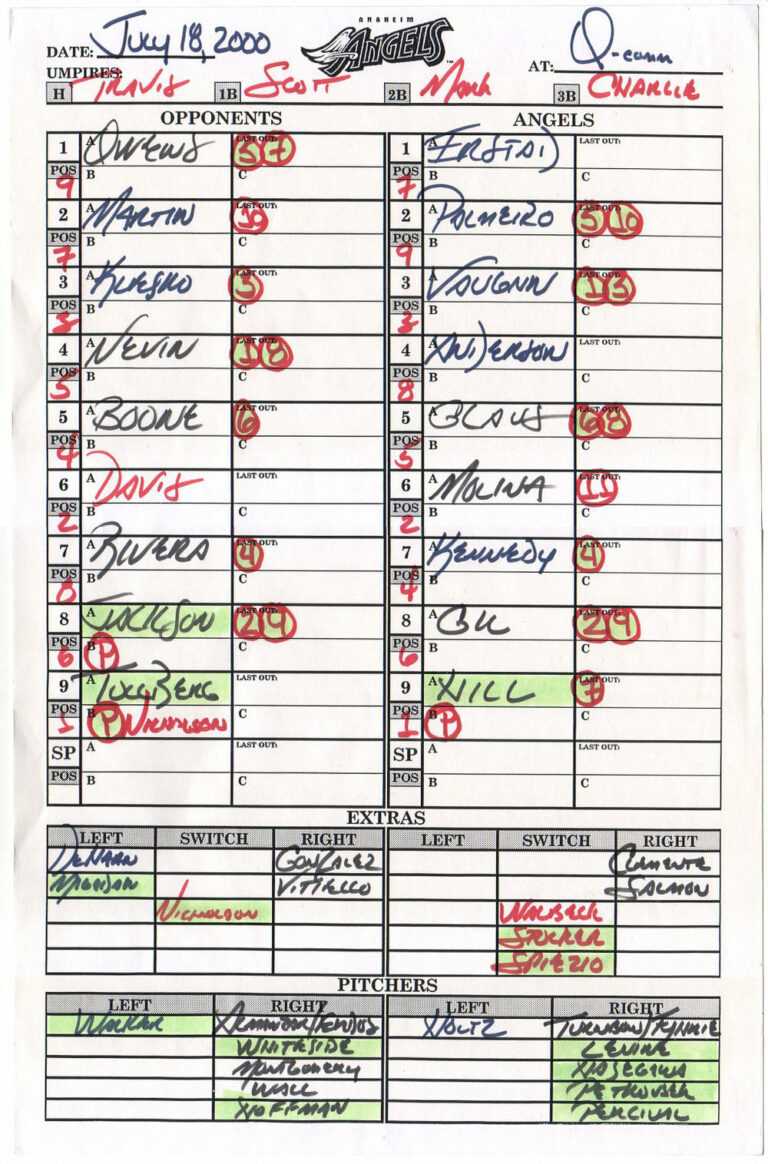 ANAHEIM
ANGELS
DATE: July 18, 2000
AT: Q-comm
UMPIRES:
H Travis 1B Scott 2B Mark 3B Charlie
OPPONENTS ANGELS
1 A Owens LAST OUT: 5 7
POS 9 B C
2 A Martin LAST OUT: 10
POS 7 B C
3 A Klesko LAST OUT: 3
POS 3 B C
4 A Nevin LAST OUT: 1 8
POS 5 B C
5 A Boone LAST OUT: 6
POS 4 B C
6 A Davis LAST OUT:
POS 2 B C
7 A Rivera LAST OUT: 4
POS 8 B C
8 A Jackson LAST OUT: 2 9
POS 6 B P C
9 A Tollberg LAST OUT:
POS 1 B P Nicholson C
SP A LAST OUT:
POS B C
1 A Erstad LAST OUT:
POS 7 B C
2 A Palmeiro LAST OUT: 5 10
POS 9 B C
3 A Vaughn LAST OUT: 1 3
POS 3 B C
4 A Anderson LAST OUT:
POS 8 B C
5 A Glaus LAST OUT: 6 8
POS 5 B C
6 A Molina LAST OUT: 11
POS 2 B C
7 A Kennedy LAST OUT: 4
POS 4 B C
8 A Gil LAST OUT: 2 9
POS 6 B C
9 A Hill LAST OUT: 7
POS 1 B P C
SP A LAST OUT:
POS B C
EXTRAS
LEFT SWITCH RIGHT LEFT SWITCH RIGHT
DeHaan Gonzalez Clemente
Magadan Vitiello Salmon
Nicholson Walbeck
Stocker
Spiezio
PITCHERS
LEFT RIGHT LEFT RIGHT
Walker Holtz
Whiteside Levine
Montgomery Hasegawa
Wall Petkovsek
Hoffman Percival